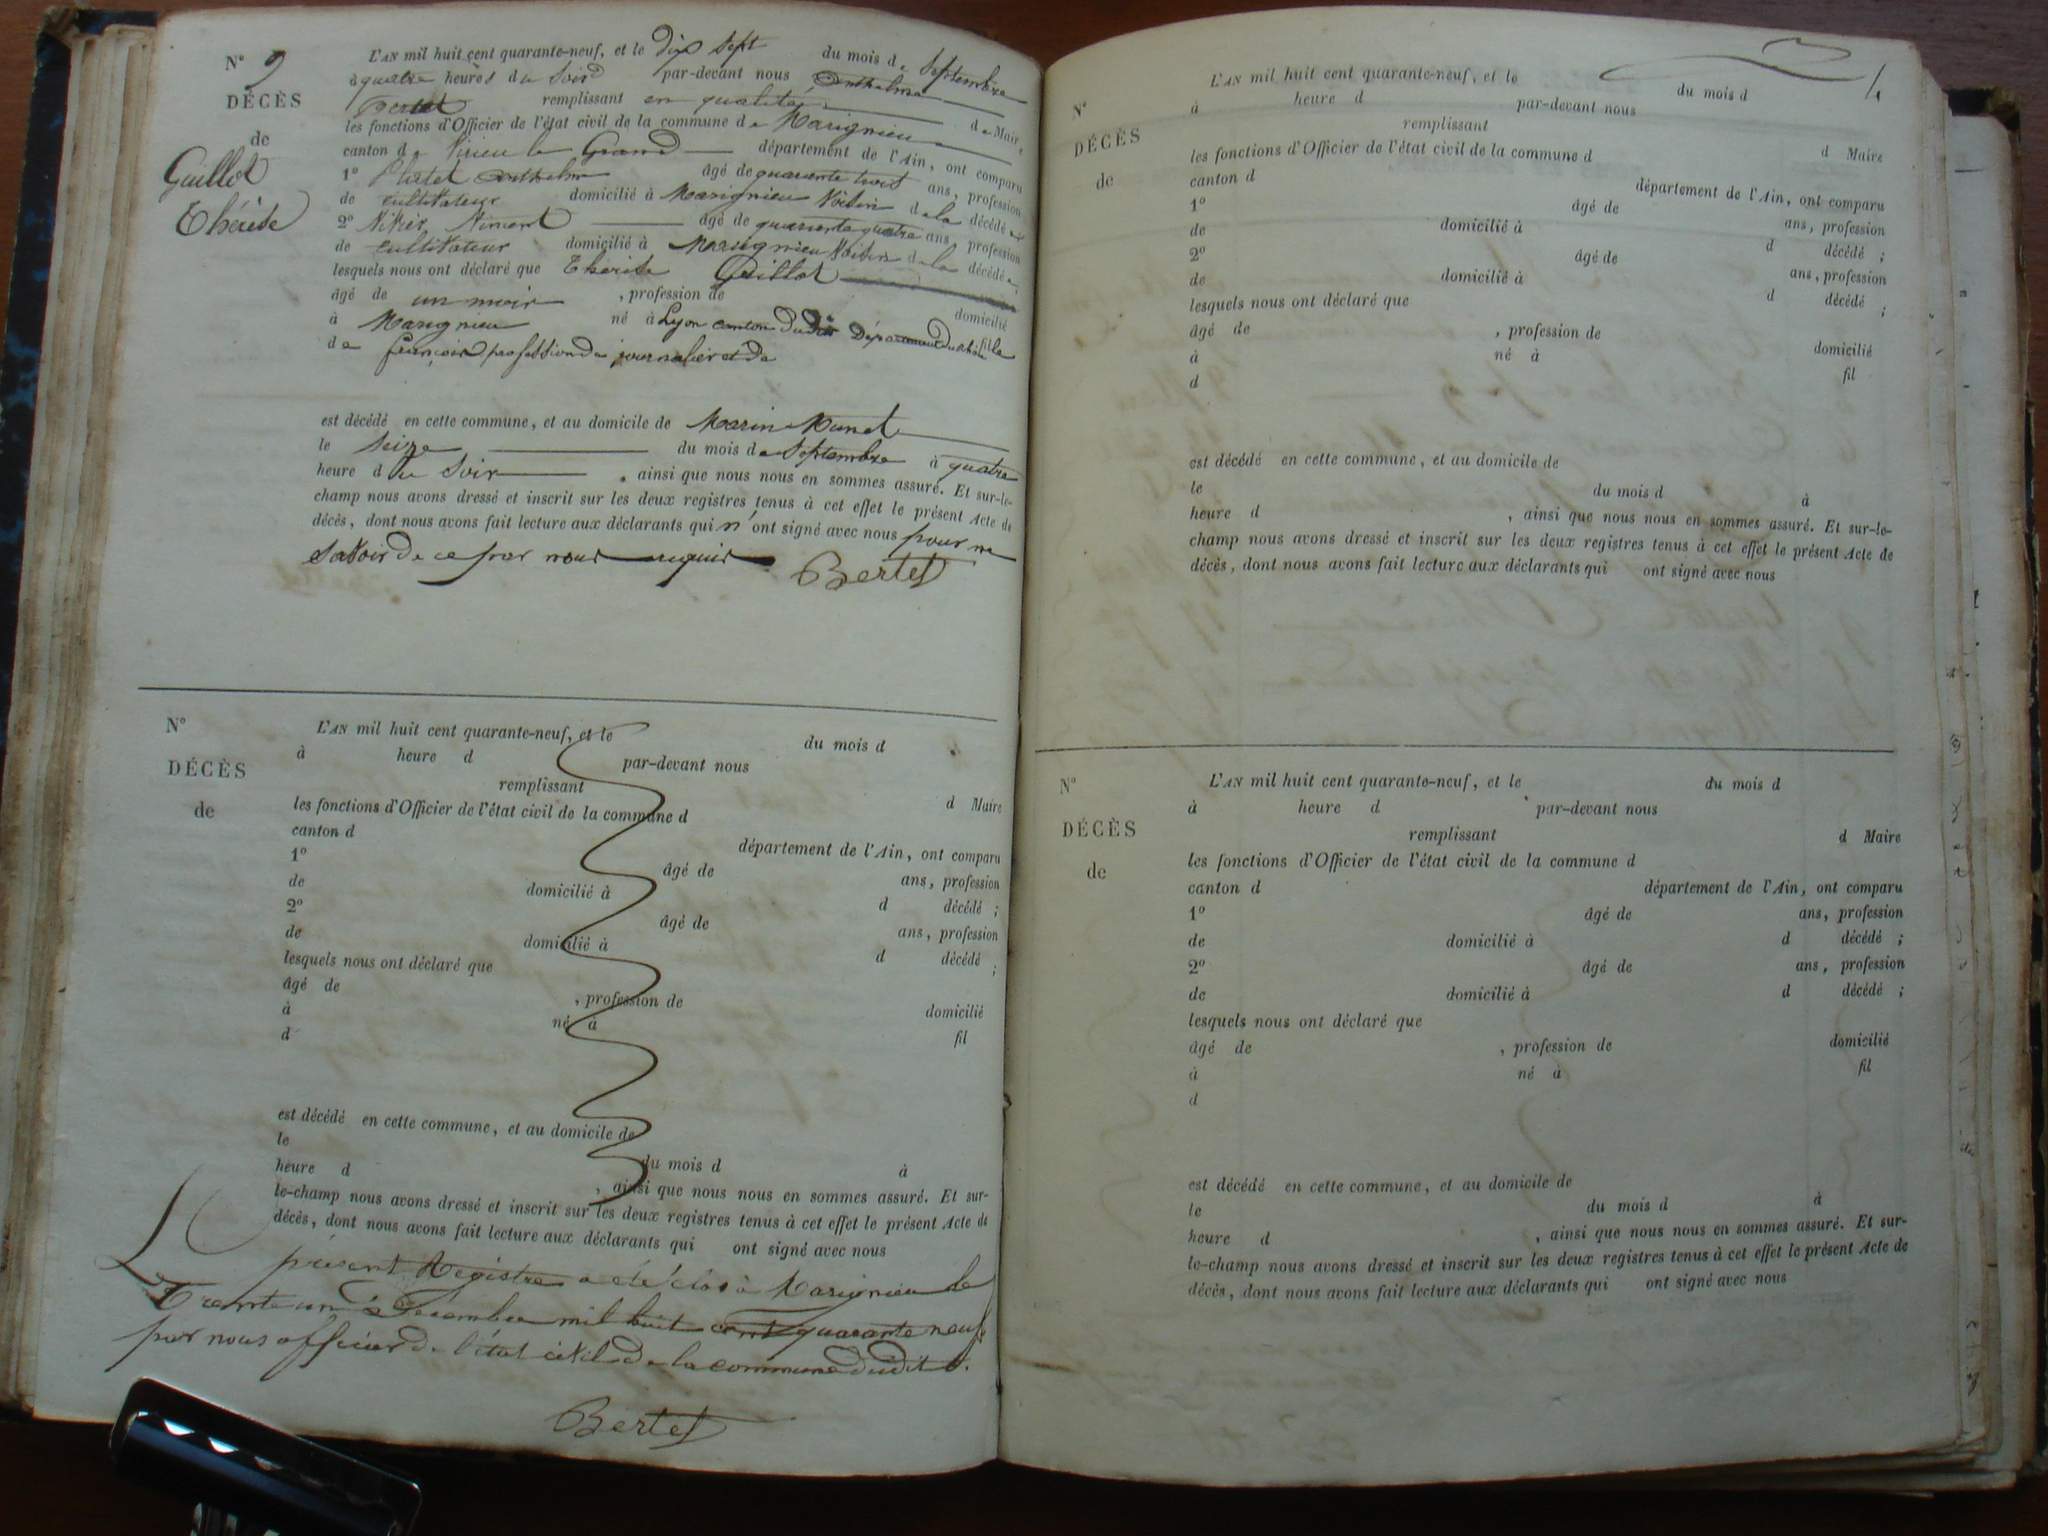 N° 9
DÉCÈS
de
Guillot
Thérèse
L'AN mil huit cent quarante-neuf, et le dix sept du mois de Septembre
à quatre heures du Soir par-devant nous Anthelme
Bertet remplissant en qualité de Maire
les fonctions d'Officier de l'état civil de la commune de Marignieu
canton de Virieu le Grand département de l'Ain, ont comparu
1° Anthelme âgé de quarante trois ans, profession
de cultivateur domicilié à Marignieu Voisin de la décédée
2° Vincent âgé de quarante quatre ans, profession
de cultivateur domicilié à Marignieu Voisin de la décédée;
lesquels nous ont déclaré que Thérèse Guillot
âgé de un mois , profession de domicilié
à Marignieu né à Lyon canton du Dépt du Rhône fille
de françois profession de journalier et de
est décédé en cette commune, et au domicile de Marin Munet
le Seize du mois de Septembre à quatre
heure du Soir , ainsi que nous nous en sommes assuré. Et sur-le-
champ nous avons dressé et inscrit sur les deux registres tenus à cet effet le présent Acte de
décès, dont nous avons fait lecture aux déclarants qui n'ont signé avec nous pour ne
Savoir de ce par nous requis
Bertet
N°
DÉCÈS
de
L'AN mil huit cent quarante-neuf, et le du mois d
à heure d par-devant nous
remplissant d Maire
les fonctions d'Officier de l'état civil de la commune d
canton d département de l'Ain, ont comparu
1° âgé de ans, profession
de domicilié à d décédé ;
2° âgé de ans, profession
de domicilié à d décédé ;
lesquels nous ont déclaré que
âgé de , profession de domicilié
à né à fil
d
est décédé en cette commune, et au domicile de
le du mois d à
heure d , ainsi que nous nous en sommes assuré. Et sur-
le-champ nous avons dressé et inscrit sur les deux registres tenus à cet effet le présent Acte de
décès, dont nous avons fait lecture aux déclarants qui ont signé avec nous
Le présent Registre a été clos à Marignieu le
Trente un Décembre mil huit cent quarante neuf
par nous officier de l'état civil de la commune dudit
Bertet
4
N°
DÉCÈS
de
L'AN mil huit cent quarante-neuf, et le du mois d
à heure d par-devant nous
remplissant d Maire
les fonctions d'Officier de l'état civil de la commune d
canton d département de l'Ain, ont comparu
1° âgé de ans, profession
de domicilié à d décédé ;
2° âgé de ans, profession
de domicilié à d décédé ;
lesquels nous ont déclaré que
âgé de , profession de domicilié
à né à fil
d
est décédé en cette commune, et au domicile de
le du mois d à
heure d , ainsi que nous nous en sommes assuré. Et sur-le-
champ nous avons dressé et inscrit sur les deux registres tenus à cet effet le présent Acte de
décès, dont nous avons fait lecture aux déclarants qui ont signé avec nous
N°
DÉCÈS
de
L'AN mil huit cent quarante-neuf, et le du mois d
à heure d par-devant nous
remplissant d Maire
les fonctions d'Officier de l'état civil de la commune d
canton d département de l'Ain, ont comparu
1° âgé de ans, profession
de domicilié à d décédé ;
2° âgé de ans, profession
de domicilié à d décédé ;
lesquels nous ont déclaré que
âgé de , profession de domicilié
à né à fil
d
est décédé en cette commune, et au domicile de
le du mois d à
heure d , ainsi que nous nous en sommes assuré. Et sur-
le-champ nous avons dressé et inscrit sur les deux registres tenus à cet effet le présent Acte de
décès, dont nous avons fait lecture aux déclarants qui ont signé avec nous